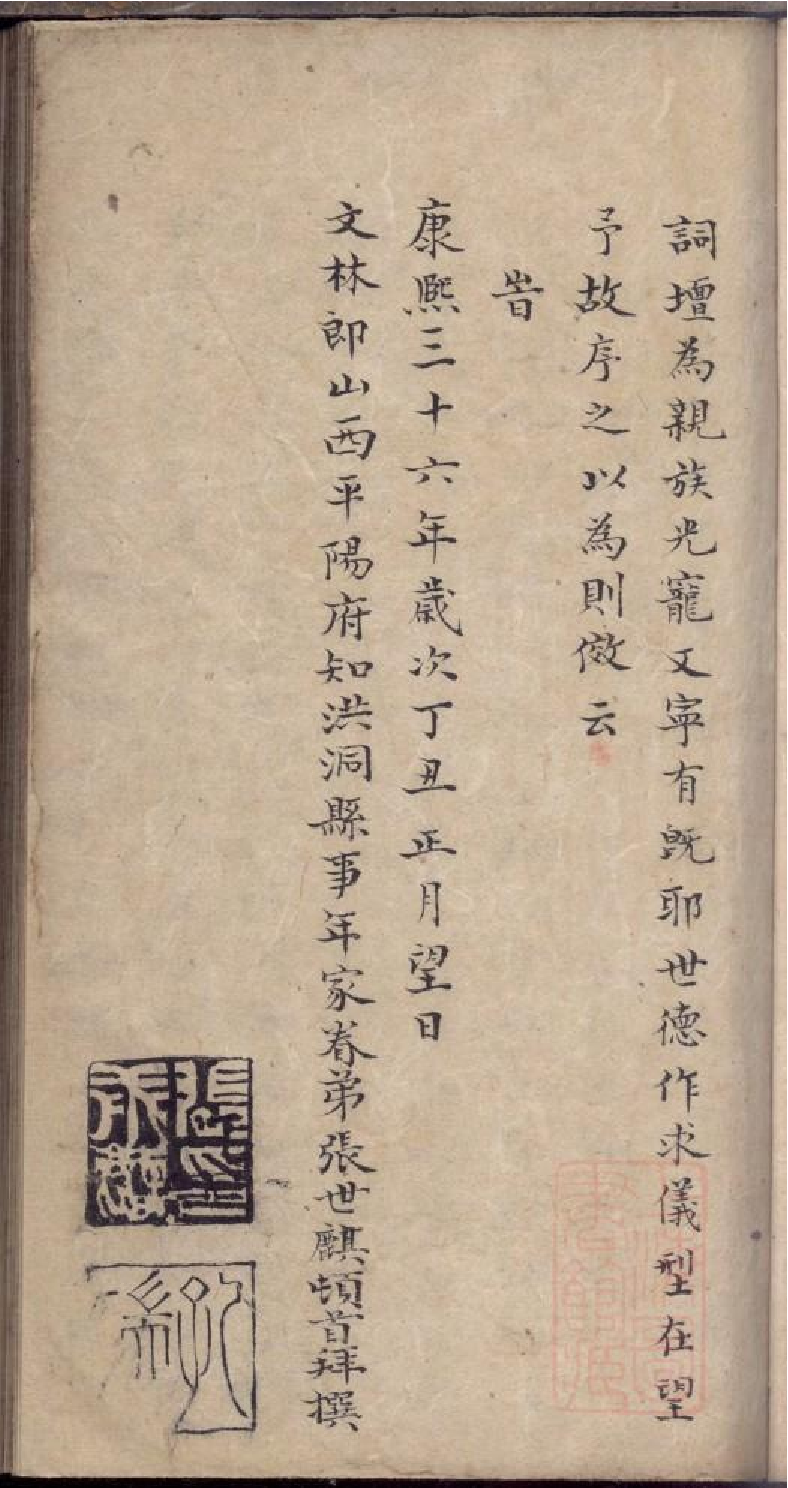 詞壇為親族光寵又寕有既耶世德作求儀型在望
予故序之以為則傚云
旹
康熈三十六年歲次丁丑正月望日
文林郎山西平陽府知洪洞縣事年家眷弟張世麒頓首拜撰